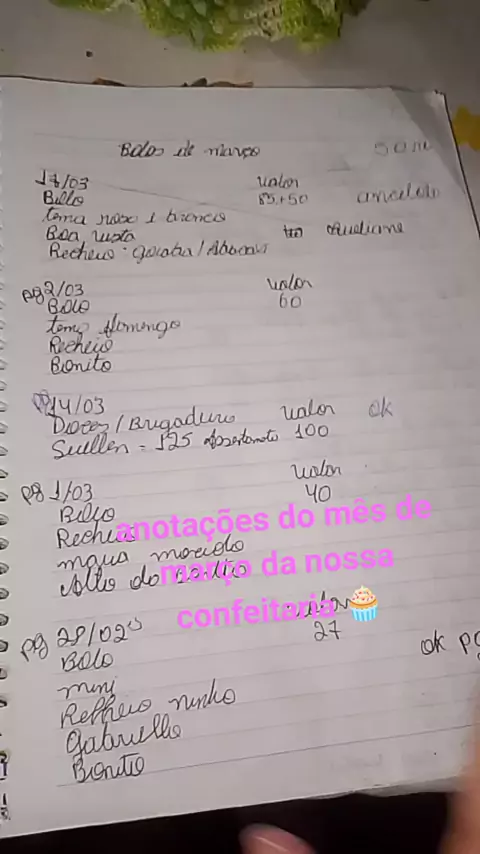 Bolos de março
17/03 valor
Bolo 85,+50 cancelado
tema roxo e branco
Boa vista
Recheio: goiaba / Abacaxi
pg 2/03 valor
Bolo 60
tema flamengo
Recheio
Bonito
14/03
Doces / Brigadeiro valor ok
Suellen = 125 100
pg 1/03 valor
Bolo 40
Recheio
anotações do mês de
março da nossa
confeitaria 🧁
pg 28/02 valor
Bolo 27
mini ok pg
Relheio ninho
Gabriello
Bonito